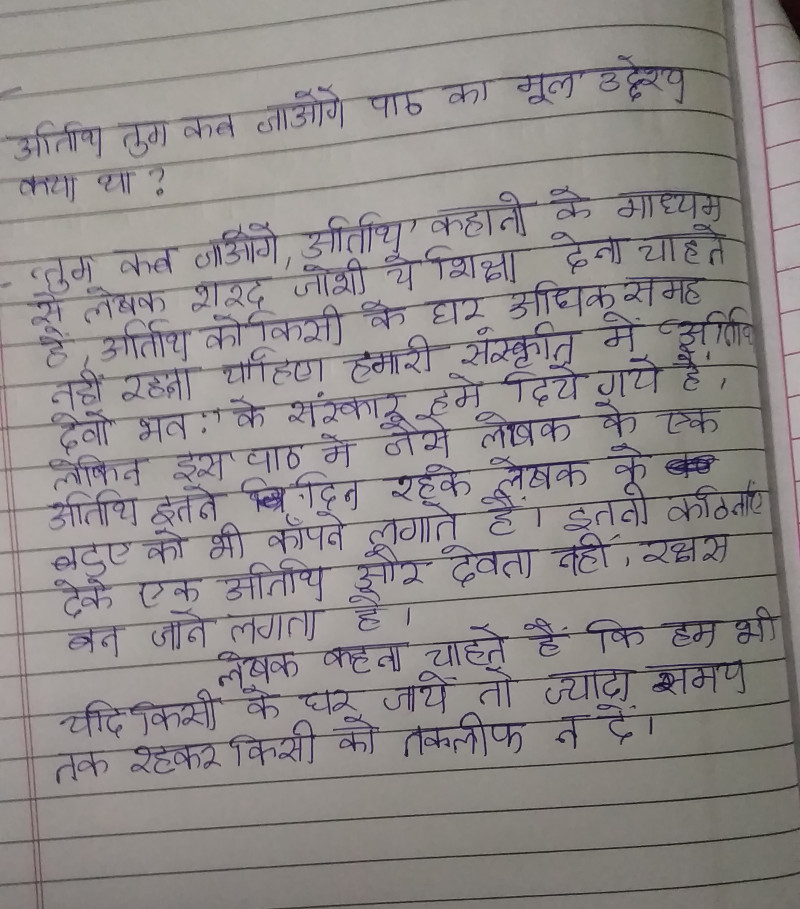 अतिथि तुम कब जाओगे पाठ का मूल उद्देश्य
क्या था ?
- "तुम कब जाओगे, अतिथि" कहानी के माध्यम
से लेखक शरद जोशी ये शिक्षा देना चाहते
है, अतिथि को किसी के घर अधिक समह
नही रहना चाहिए हमारी संस्कृति में "अतिथि
देवो भव:" के संस्कार हमे दिये गये है,
लेकिन इस पाठ मे जैसे लेखक के एक
अतिथि इतने दिन रहके लेखक के
बटुए को भी काँपने लगाते हैं। इतनी कठिनाए
देके एक अतिथि और देवता नहीं, रक्षस
बन जाने लगता है।
लेखक कहना चाहते हैं कि हम भी
यदि किसी के घर जायें तो ज्यादा समय
तक रहकर किसी को तकलीफ न दें।